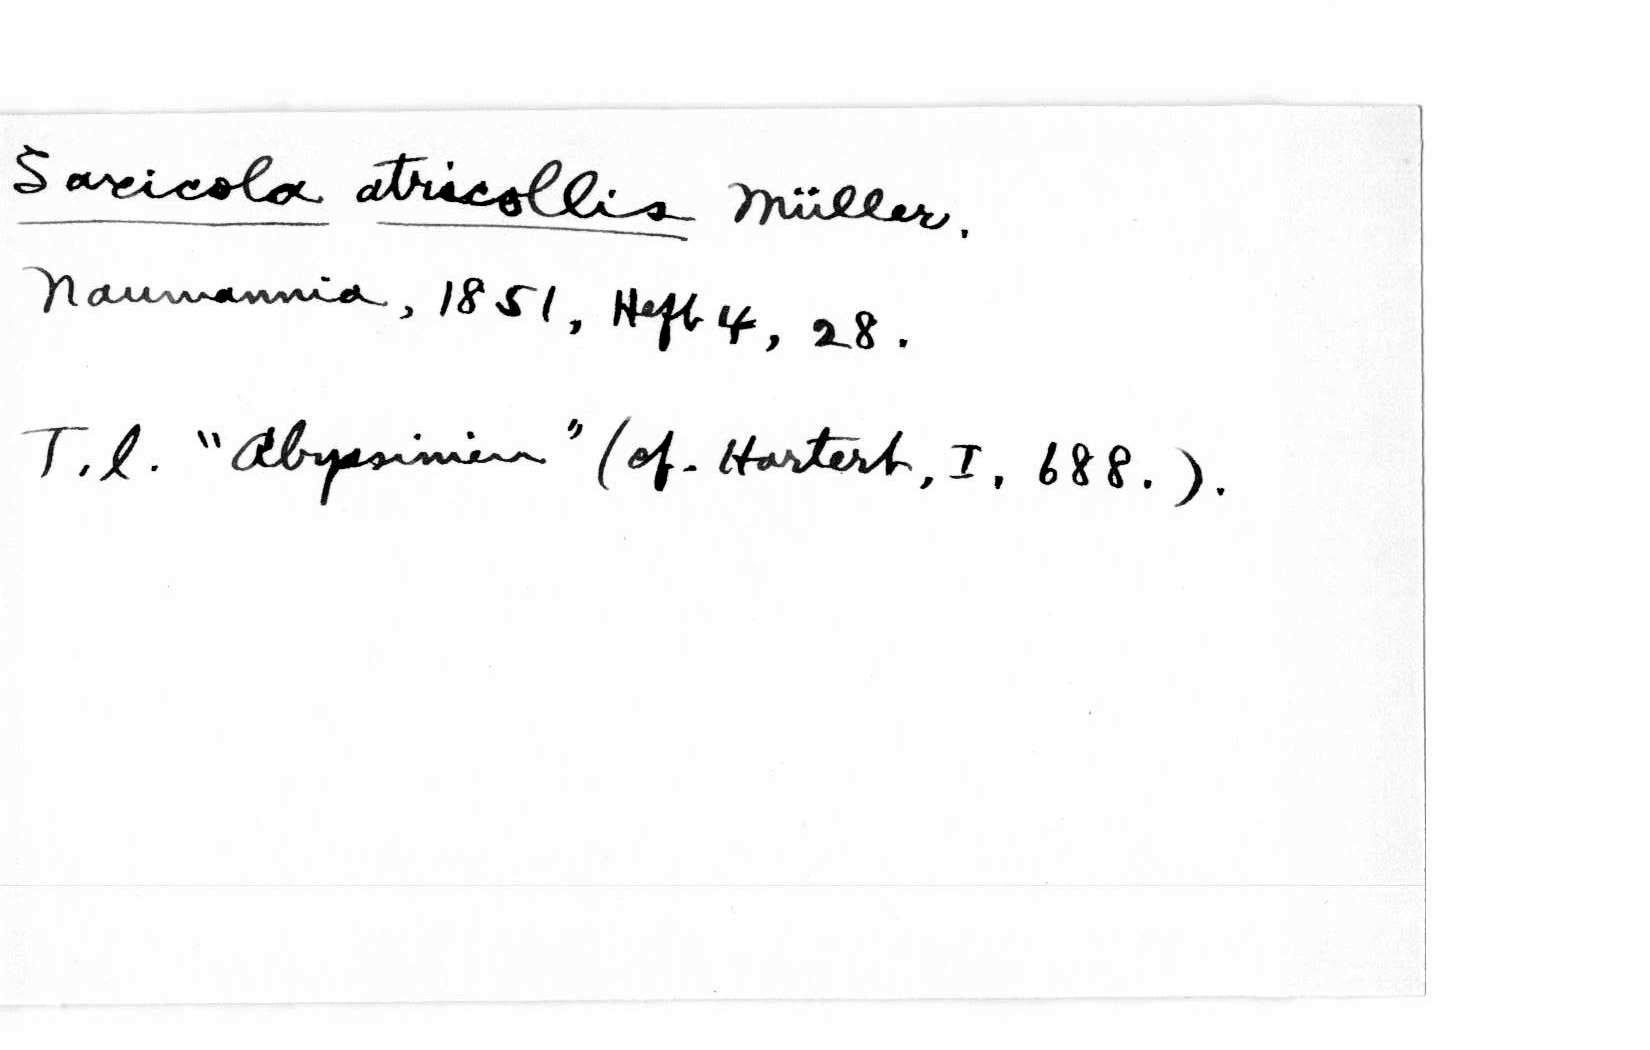 Saxicola atricollis Müller.
Naumannia, 1851, Heft 4, 28.
T.l. "Abyssinien" (cf. Hartert, I, 688.).